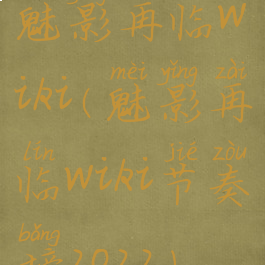 魅影再临w
iki(魅影再
méi yǐng zài
临wiki节奏
lín jié zòu
榜2022)
bǎng